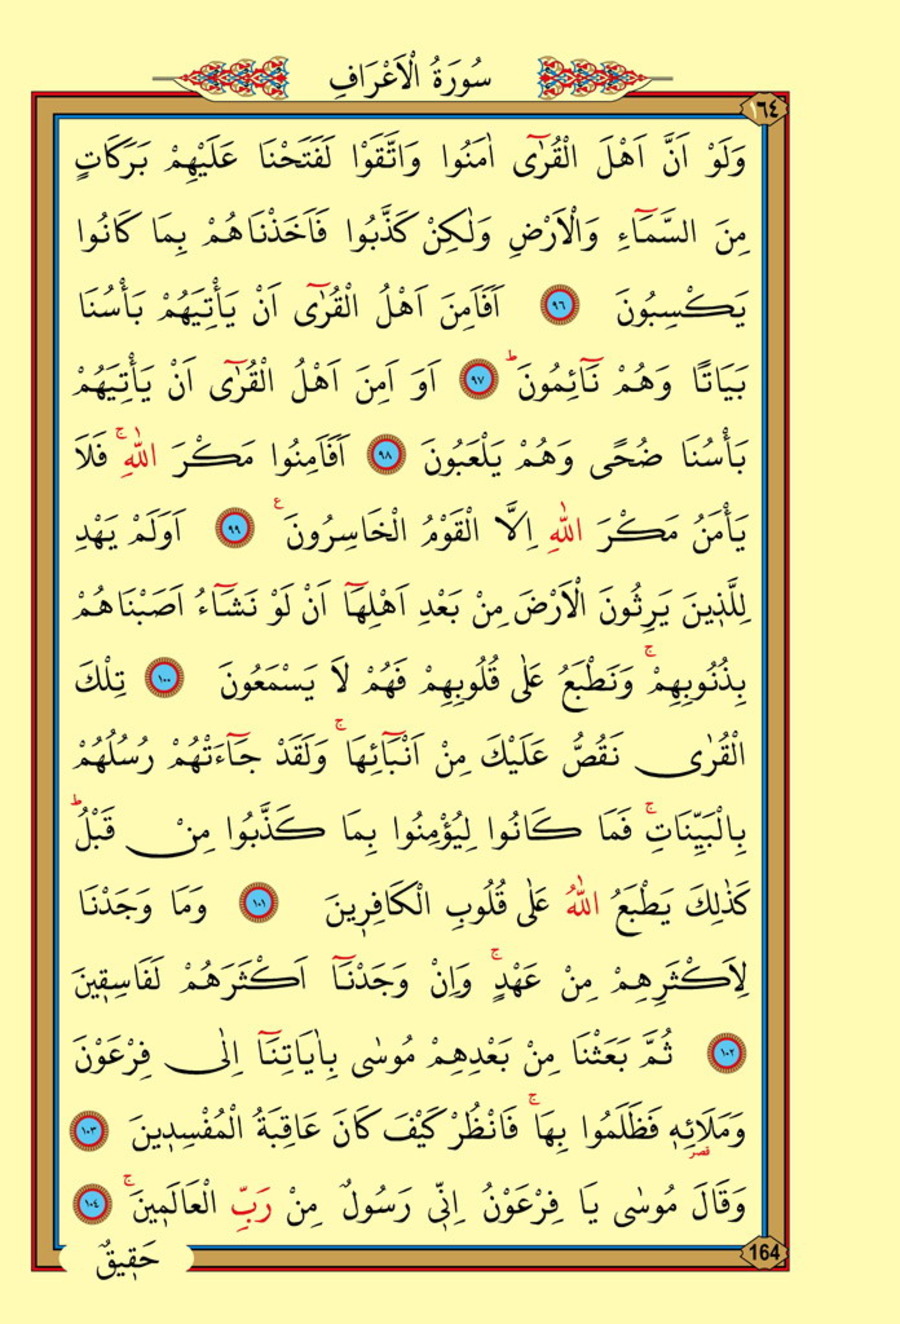 سُورَةُ الْاَعْرَافِ
١٦٤
وَلَوْ اَنَّ اَهْلَ الْقُرٰٓى اٰمَنُوا وَاتَّقَوْا لَفَتَحْنَا عَلَيْهِمْ بَرَكَاتٍ
مِنَ السَّمَٓاءِ وَالْاَرْضِ وَلٰكِنْ كَذَّبُوا فَاَخَذْنَاهُمْ بِمَا كَانُوا
يَكْسِبُونَ ٩٦ اَفَاَمِنَ اَهْلُ الْقُرٰٓى اَنْ يَأْتِيَهُمْ بَأْسُنَا
بَيَاتًا وَهُمْ نَٓائِمُونَ ط ٩٧ اَوَ اَمِنَ اَهْلُ الْقُرٰٓى اَنْ يَأْتِيَهُمْ
بَأْسُنَا ضُحًى وَهُمْ يَلْعَبُونَ ٩٨ اَفَاَمِنُوا مَكْرَ اللّٰهِ ج فَلَا
يَأْمَنُ مَكْرَ اللّٰهِ اِلَّا الْقَوْمُ الْخَاسِرُونَ ع ٩٩ اَوَلَمْ يَهْدِ
لِلَّذ۪ينَ يَرِثُونَ الْاَرْضَ مِنْ بَعْدِ اَهْلِهَٓا اَنْ لَوْ نَشَٓاءُ اَصَبْنَاهُمْ
بِذُنُوبِهِمْ ج وَنَطْبَعُ عَلٰى قُلُوبِهِمْ فَهُمْ لَا يَسْمَعُونَ ١٠٠ تِلْكَ
الْقُرٰى نَقُصُّ عَلَيْكَ مِنْ اَنْبَٓائِهَا ج وَلَقَدْ جَٓاءَتْهُمْ رُسُلُهُمْ
بِالْبَيِّنَاتِ ج فَمَا كَانُوا لِيُؤْمِنُوا بِمَا كَذَّبُوا مِنْ قَبْلُ ط
كَذٰلِكَ يَطْبَعُ اللّٰهُ عَلٰى قُلُوبِ الْكَافِر۪ينَ ١٠١ وَمَا وَجَدْنَا
لِاَكْثَرِهِمْ مِنْ عَهْدٍ ج وَاِنْ وَجَدْنَٓا اَكْثَرَهُمْ لَفَاسِق۪ينَ
١٠٢ ثُمَّ بَعَثْنَا مِنْ بَعْدِهِمْ مُوسٰى بِاٰيَاتِنَٓا اِلٰى فِرْعَوْنَ
وَمَلَائِه۪ قصر فَظَلَمُوا بِهَا ج فَانْظُرْ كَيْفَ كَانَ عَاقِبَةُ الْمُفْسِد۪ينَ ١٠٣
وَقَالَ مُوسٰى يَا فِرْعَوْنُ اِنّ۪ي رَسُولٌ مِنْ رَبِّ الْعَالَم۪ينَ ج ١٠٤
164
حَق۪يقٌ